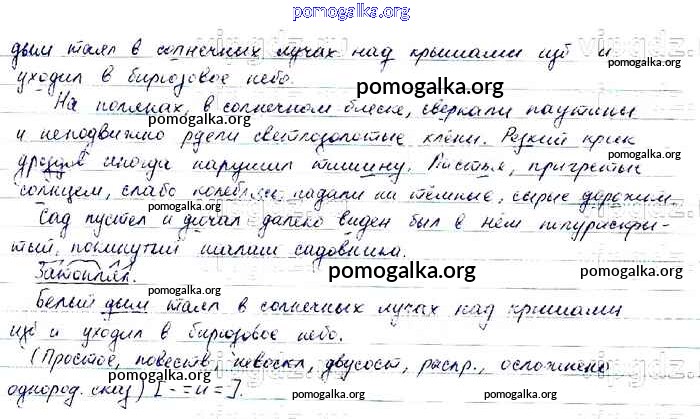 pomogalka.org
дым таял в солнечных лучах над крышами изб и
уходил в бирюзовое небо.
pomogalka.org
pomogalka.org
На полянах, в солнечном блеске, сверкали паутины
и неподвижно рдели светлозолотые клёны. Резкий крик
pomogalka.org
pomogalka.org
дроздов иногда нарушал тишину. Листья, пригретые
солнцем, слабо колеблясь, падали на тёмные, сырые дорожки.
pomogalka.org
Сад пустел и дичал далеко виден был в нём полураскры-
тый, покинутый шалаш садовника.
pomogalka.org
pomogalka.org
Белый дым таял в солнечных лучах над крышами
изб и уходил в бирюзовое небо.
pomogalka.org
pomogalka.org
(Простое, повеств, невоскл, двусост, распр., осложнено
однород. сказ) [- = и =].
pomogalka.org